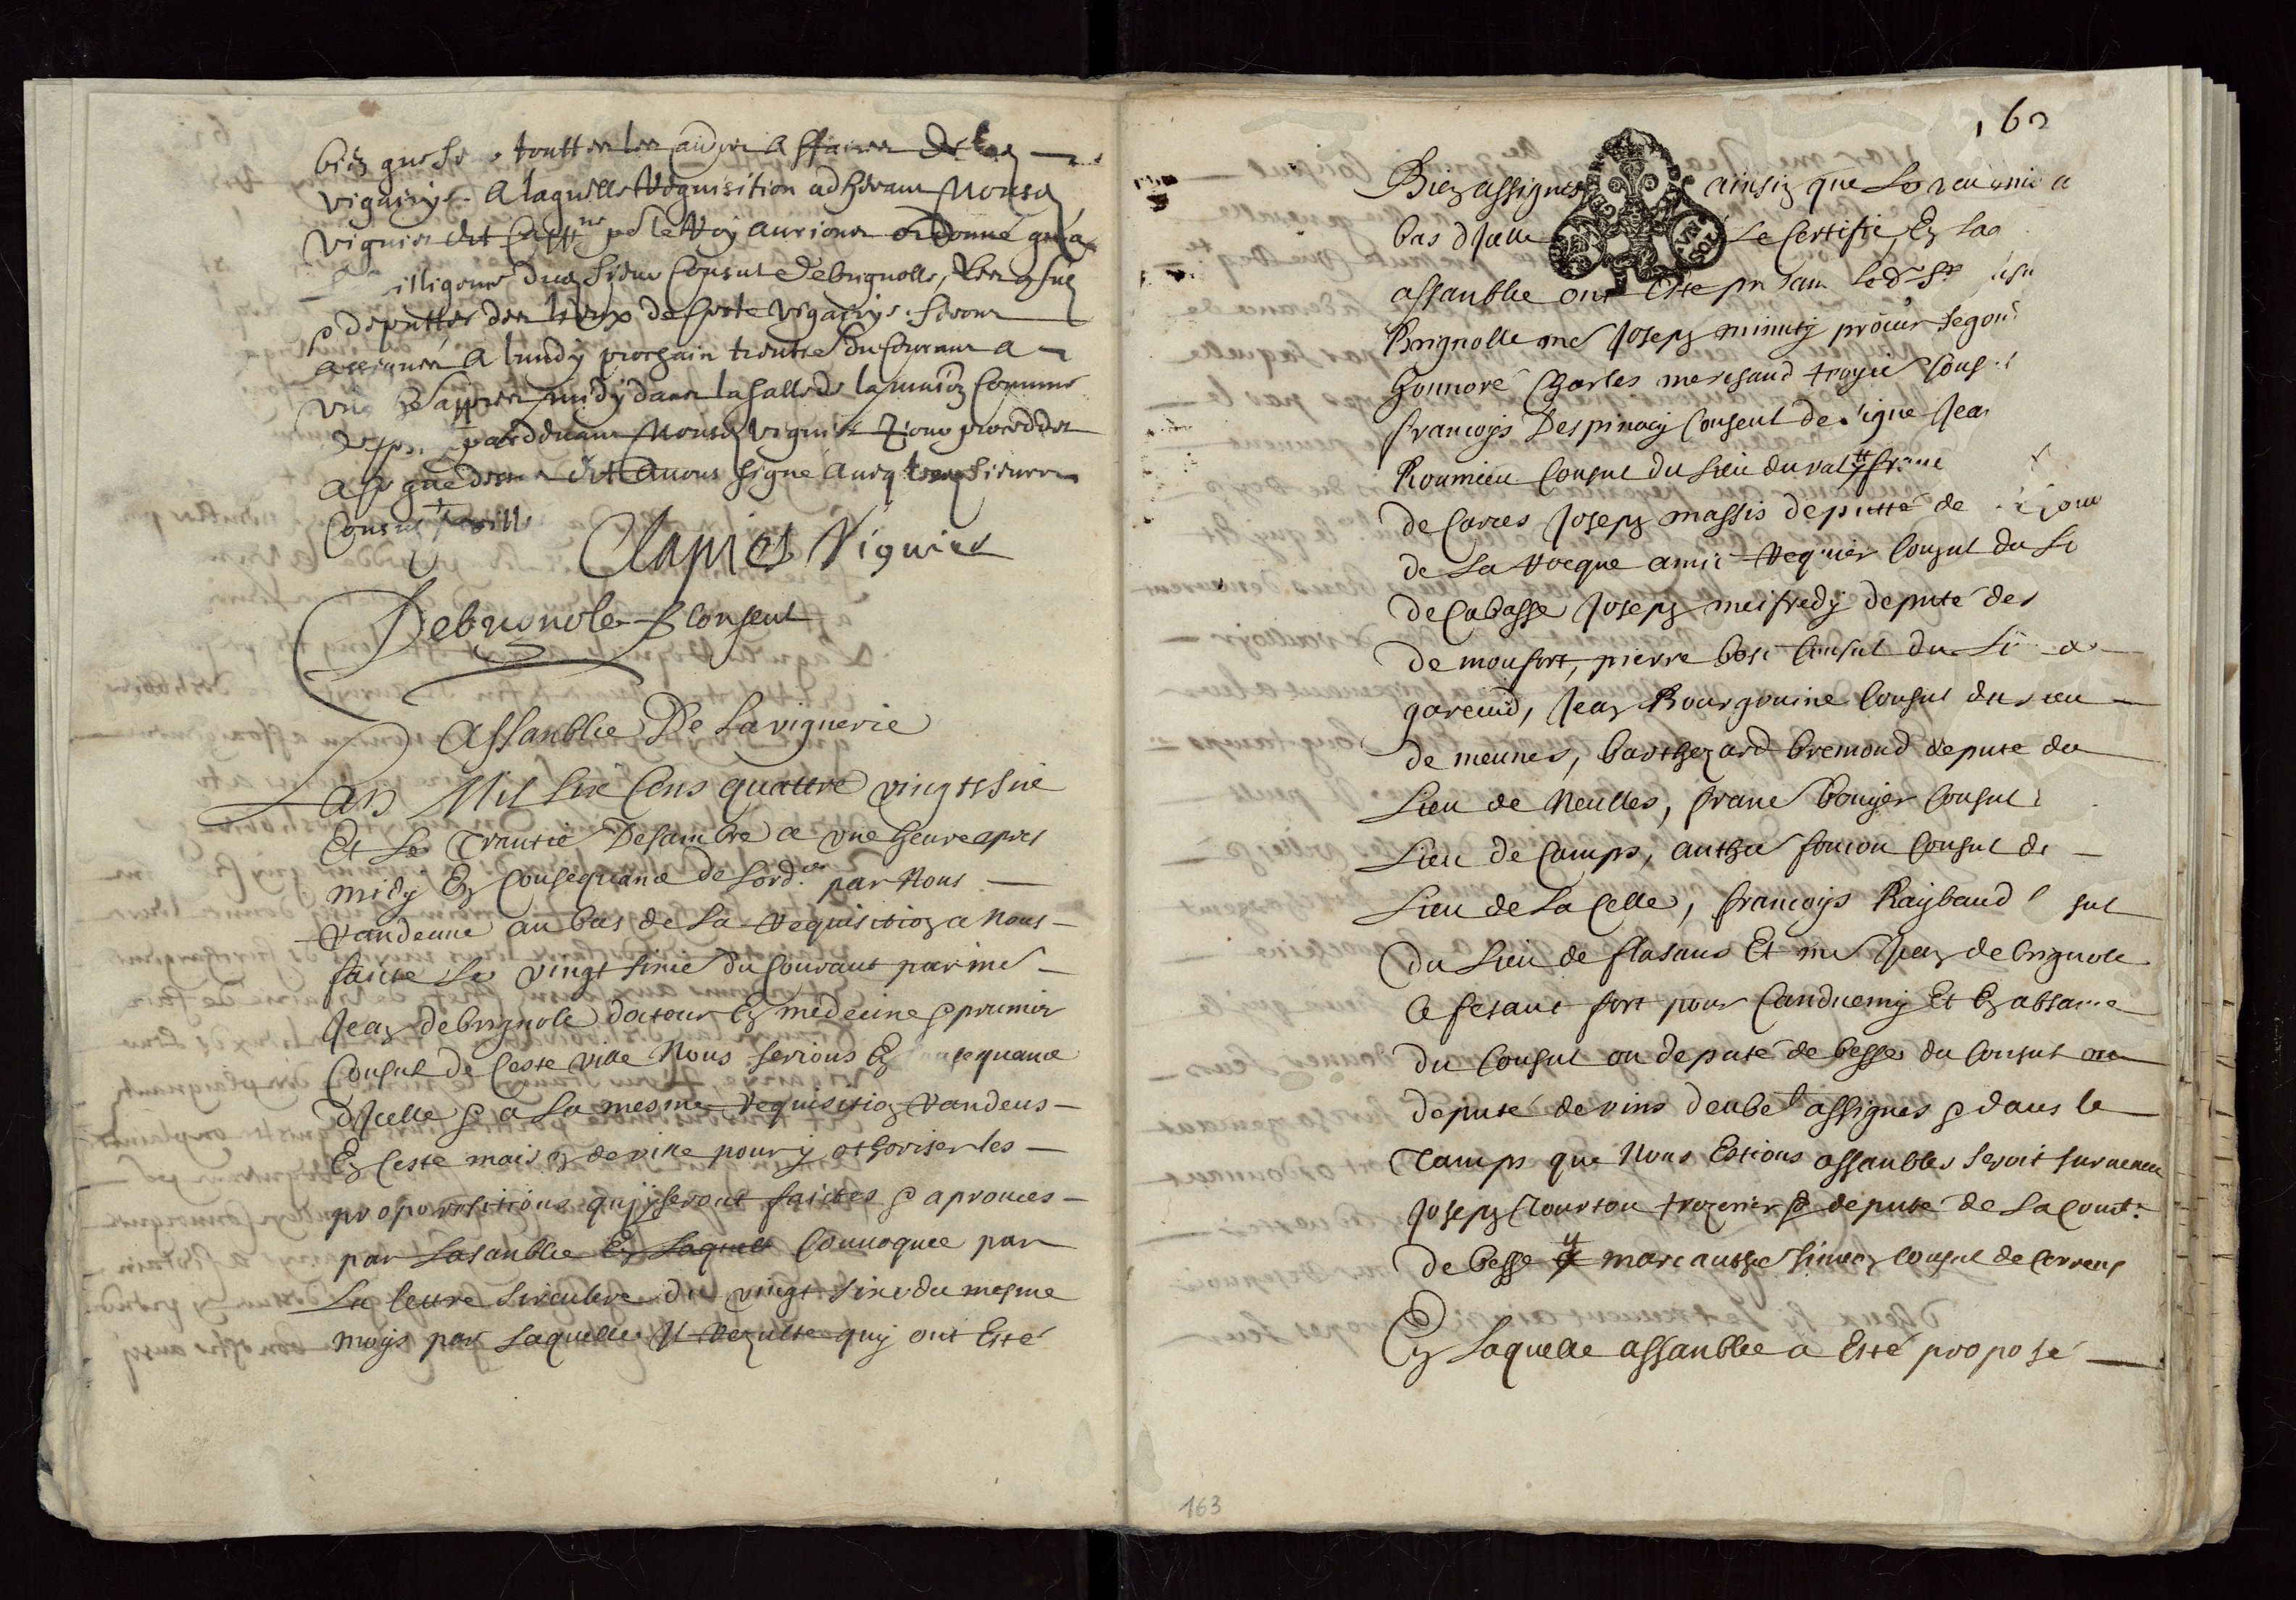 toutter les aidres affaires de lad
viguirye. A laquelle Requisition adherant Monsr
viguier et Cappne po le Roy aurions ordonné qua
dilligence dud sieur Consul de brignolle, les consuls
& deputtes des lieux de ceste vigairye seront
assignes a lundy prochain trente du courant a
une h dappres midy dans la salle de la maison commune
pardevant Monsr viguier pour proceder
a ce que dessus et avons signé aveq led sieur
Consul
Clapiers Viguier
Debrignole & consent
Assanblee De La viguerie
Lan Mil sixe Cens quattre vingts sixe
Et Le Trantie Desambre a une heure apres
midy En Consequance de Lordce par Nous
Randeune au bas de La Requisition a Nous
faicte Le vingt sixie du Courant par me
Jean debrignole doctour En medecine & prumier
Consul de Ceste ville Nous serions En consequance
dIcelle & a La mesme Requisition Randeus
En Ceste maison de ville pour y othoriser les
propozitions quy seront faictes & aprouees
par Lasanblee En Laquelle Connoquee par
La lettre sirculere du vingt sixe du mesme
moys par Laquelle Il Rezulte quy ont Esté
162
Bien assignes ainsin que Le
bas dIcelle Le Certifie En Lad
assanblee ont Esté pnsant led Sr
Brignolle me Joseph minuty procur segond
honnoré Charles merchand troyie Cons
francoys Despinacy Conseul de signe Jean
Roumieu Consul du Lieu du val
de Carces Joseph massis deputté de
de La Rocque amic Requier Consul du Li
de Cabasse Joseph meifredy deputé des
de monfort, pierre bosc Consul du Li
gareoud, Jean Bourgouine Consul du Lieu
de meunes, barthezard bremond deputé du
Lieu de Neulles, franc bouyer Consul
Lieu de Camps, anthe foucou Consul de
Lieu de La Celle, francoys Raybaud sul
du Lieu de flasans Et me Jean debrignole
Ce fesant fort pour Canduemy Et En absance
du Consul ou deputé de besse du Consul ou
deputé de vins deubet assignes & dans le
Tamps que Nous Estions assanbles seroit surueneu
Joseph Tourtou trezorier & deputé de La Comt
de besse y marc anthe simon Consul de Correns
En Laquelle assanblee a Esté proposé
163